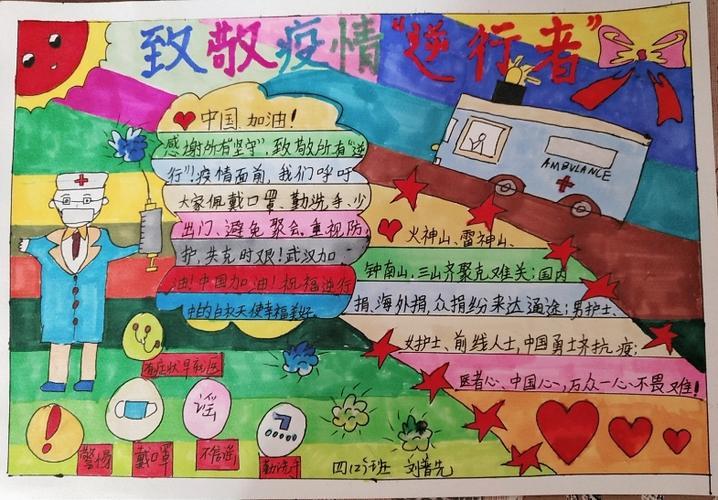 致敬疫情"逆行者"
中国加油！
感谢所有"坚守",致敬所有"逆
行"!疫情面前,我们呼吁
大家佩戴口罩、勤洗手、少
出门、避免聚会,重视防
护,共克时艰!武汉加
油!中国加油!祝福逆行
中的白衣天使幸福美好
AMBULANCE
火神山、雷神山、
钟南山,三山齐聚克难关;国内
捐、海外捐,众捐纷来达通途;男护士、
女护士、前线人士,中国勇士齐抗疫;
医者心、中国心,万众一心不畏难!
有症状早就医
谣
警惕
戴口罩
不信谣
勤洗手
四(2)班 刘普先